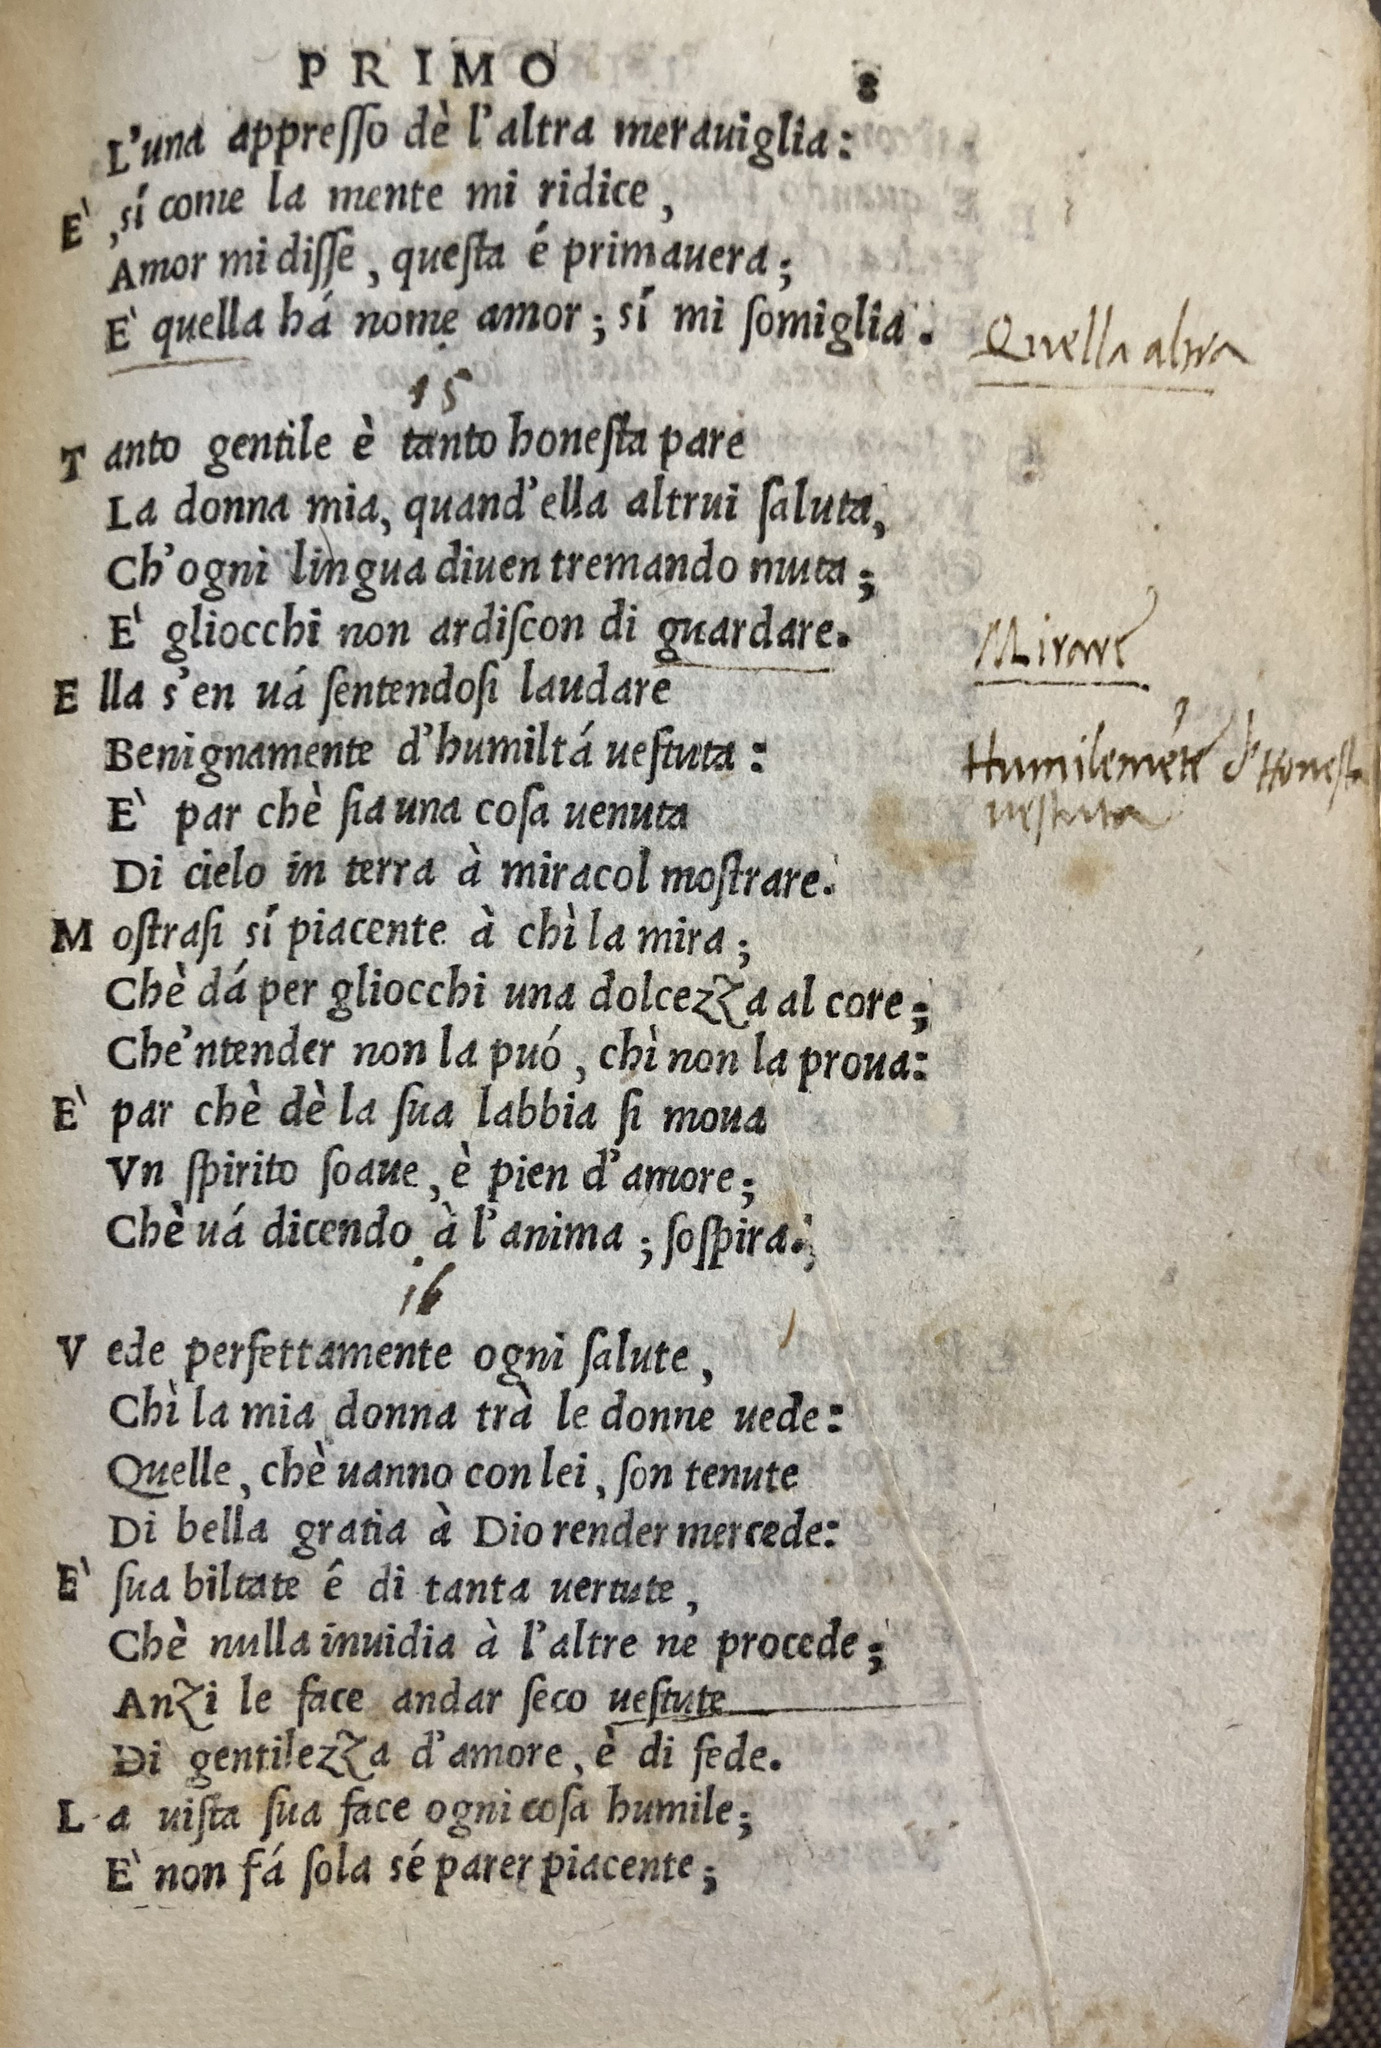 PRIMO 8
L'una appreſſo dè l'altra merauiglia:
E' ,sí come la mente mi ridice,
Amor mi diſſe, queſta é primauera;
E' quella há nome amor; sí mi ſomiglia.
Quella altra
15
Tanto gentile è tanto honeſta pare
La donna mia, quand'ella altrui ſaluta,
Ch'ogni lingua diuen tremando muta;
E' gliocchi non ardiſcon di guardare.
Mirare
Ella s'en uá ſentendoſi laudare
Benignamente d'humiltá ueſtuta:
Humilemēte d'Honeſta
ueſtuta
E' par chè ſia una coſa uenuta
Di cielo in terra à miracol moſtrare.
Moſtraſi sí piacente à chì la mira;
Chè dá per gliocchi una dolcezza al core;
Che'ntender non la puó, chì non la proua:
E' par chè dè la ſua labbia ſi moua
Vn ſpirito ſoaue, è pien d'amore;
Chè uá dicendo à l'anima; ſoſpira.
16
Vede perfettamente ogni ſalute,
Chì la mia donna trà le donne uede:
Quelle, chè uanno con lei, ſon tenute
Di bella gratia à Dio render mercede:
E' ſua biltate é di tanta uertute,
Chè nulla inuidia à l'altre ne procede;
Anzi le face andar ſeco ueſtute
Di gentilezza d'amore, è di fede.
La uiſta ſua face ogni coſa humile;
E' non fá ſola sé parer piacente;